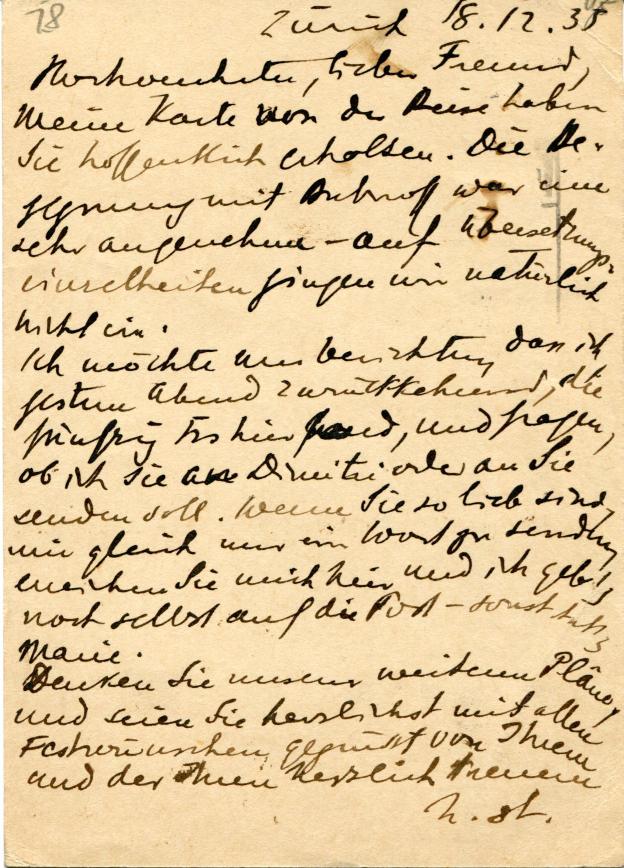 78
Zürich 18.12.38
Hochverehrter, lieber Freund,
meine Karte von der Reise haben
Sie hoffentlich erhalten. Die Be-
gegnung mit war eine
sehr angenehme – auf Übersetzungs-
einzelheiten gingen wir natürlich
nicht ein.
Ich möchte nur berichten, dass ich
gestern Abend zurückkehrend, die
fünfzig frs hier fand, und fragen,
ob ich sie an Dimitri oder an Sie
senden soll. Wenn Sie so lieb sind,
mir gleich nur ein Wort zu senden,
erreichen Sie mich hier und ich geb's
noch selbst auf die Post – sonst tut's
Marie.
Denken Sie unserer weiteren Pläne,
und seien Sie herzlichst mit allen
Festwünschen gegrüsst von Ihrem
und der Ihnen herzlich treuen
h. st.